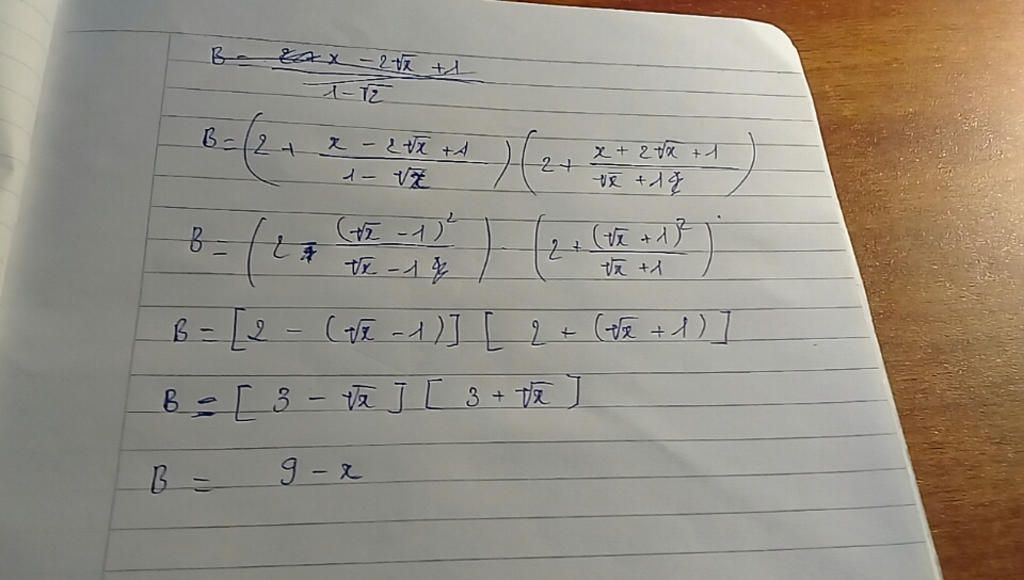 B = x - 2√x + 1 / 1 - √2
B = (2 + x - 2√x + 1 / 1 - √x) (2 + x + 2√x + 1 / √x + 1)
B = (2 - (√x - 1)² / √x - 1) - (2 + (√x + 1)² / √x + 1)
B = [2 - (√x - 1)] [2 + (√x + 1)]
B = [3 - √x] [3 + √x]
B = 9 - x